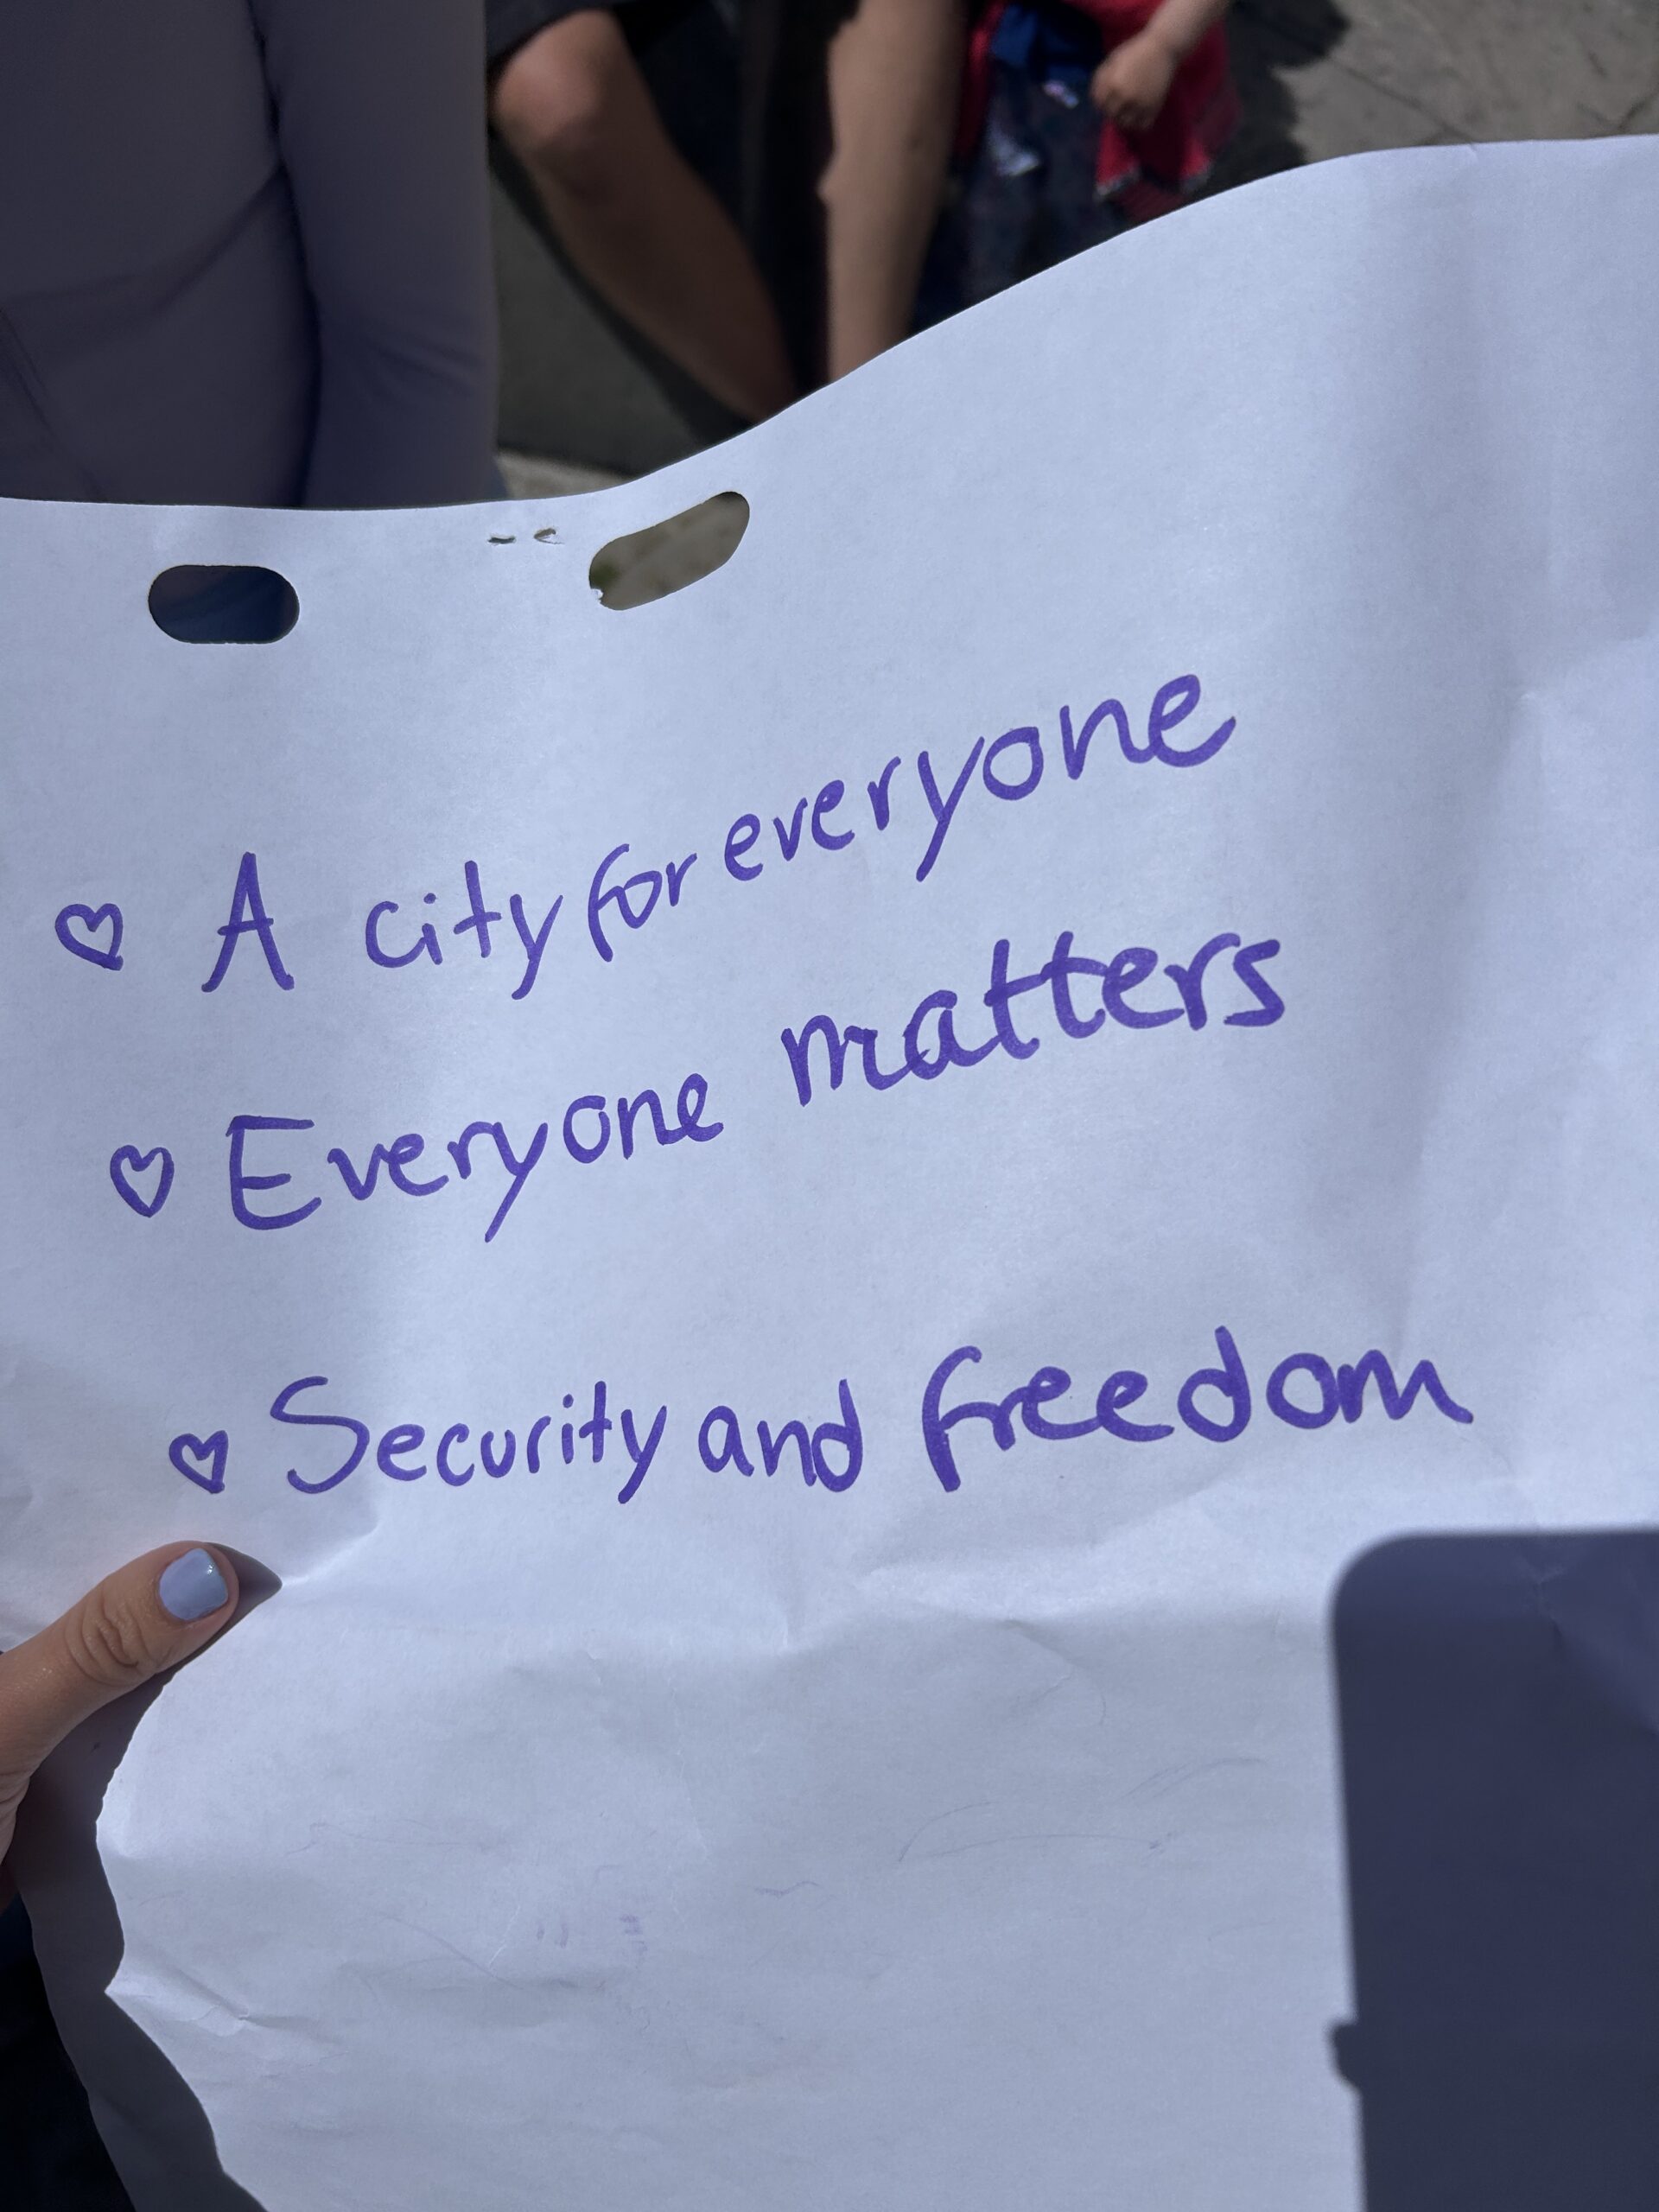 ♡ A city for everyone
♡ Everyone matters
♡ Security and freedom